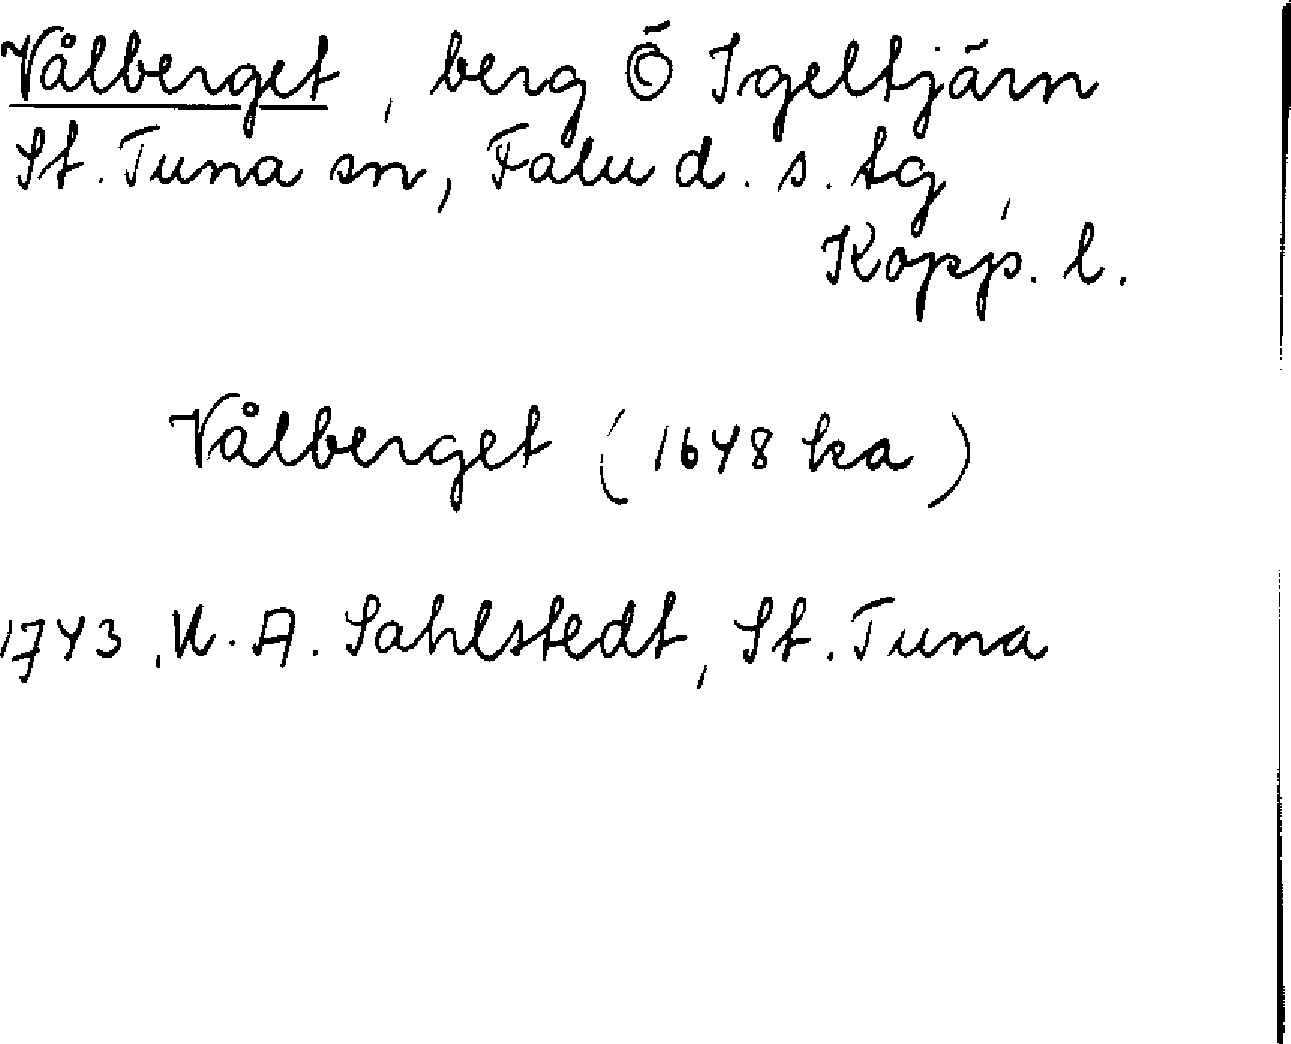 Vålberget, berg Ö Igeltjärn
St. Tuna sn, Falu d. s. tg,
Kopp. l.
Vålberget (1648 ka)
1743. A. Sahlstedt, St. Tuna